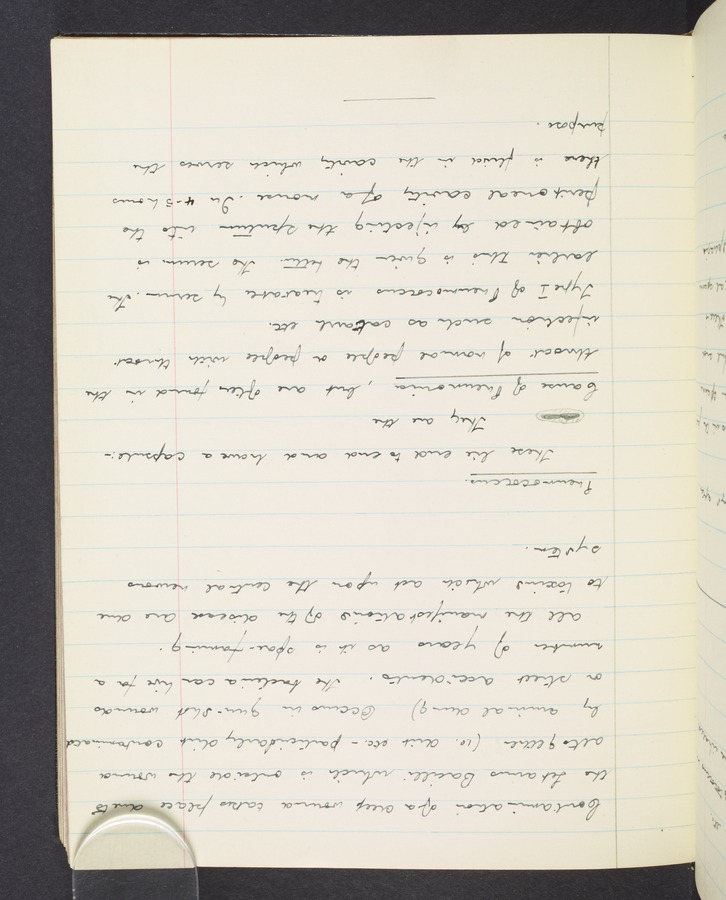 Contamination of a deep wound takes place due to
the Tetanus Bacilli which is outside the wound
altogether (ie. dirt etc - particularly dirt contaminated
by animal dung) Occurs in gun-shot wounds
or street accidents. The bacteria can live for a
number of years as it is spore-forming.
all the manifestations of the disease are due
to toxins which act upon the central nervous
system.
Pneumococcus.
These lie end to end and have a capsule:-
They are the
Cause of Pneumonia, but are often found in the
throat of normal people or people with throat
infection such as catarrh etc.
Type I of Pneumococcus is treatable by serum. The
earlier this is given the better. The serum is
obtained by injecting the sputum into the
peritoneal cavity of a mouse. In 4-5 hours
there is fluid in the cavity which serves the
purpose.